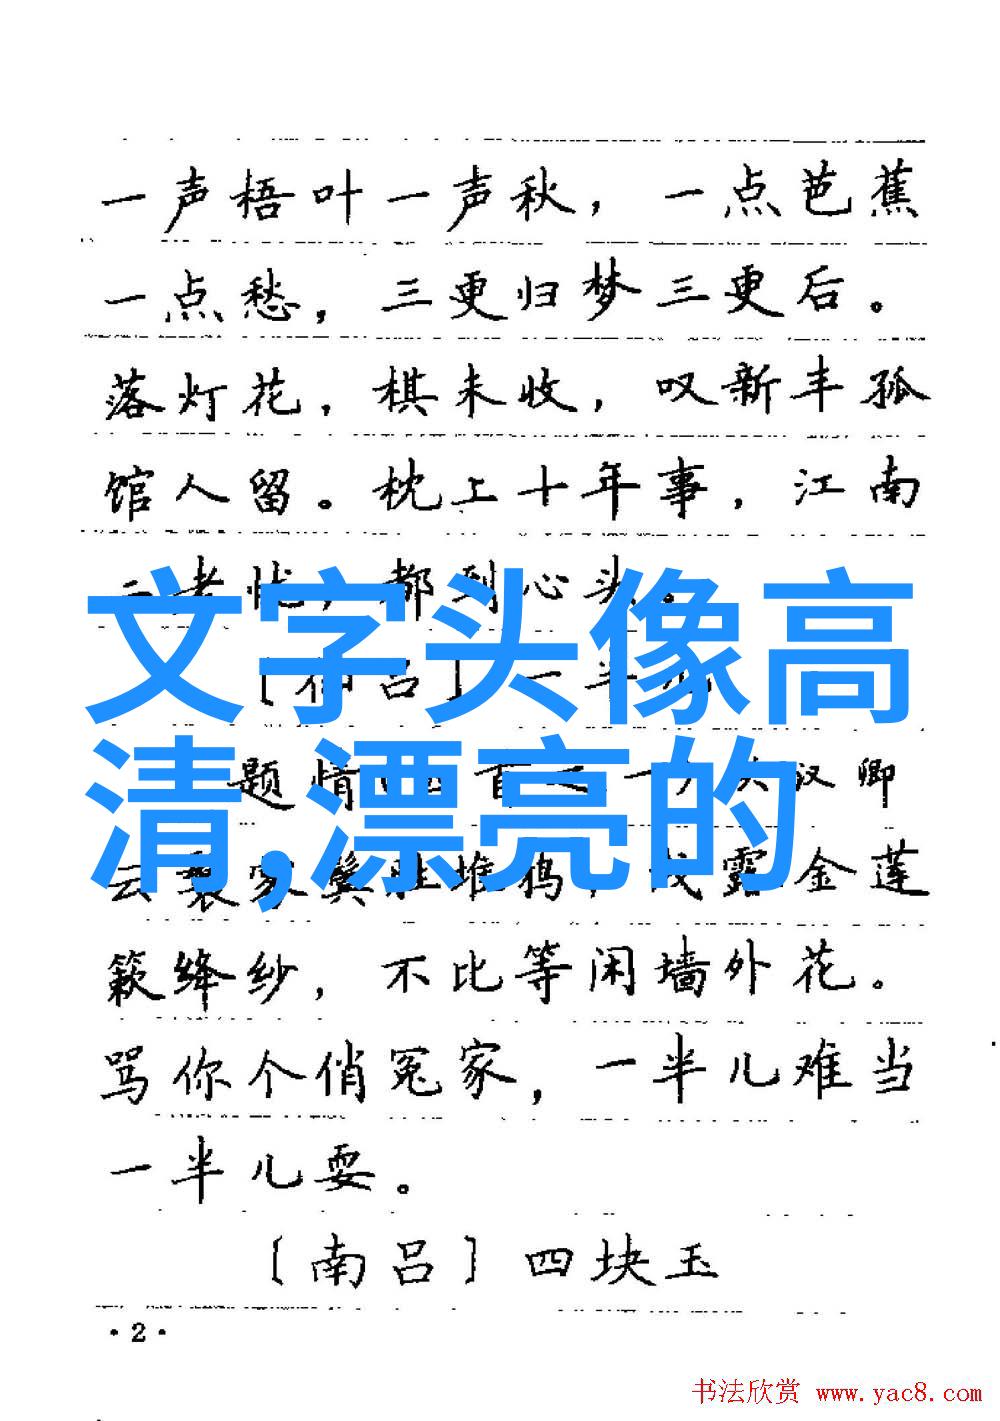 一声梧叶一声秋，一点芭蕉
一点愁，三更归梦三更后。
落灯花，棋未收，叹新丰孤
馆人留。枕上十年事，江南
二老忧，都到心头。
文字头像高
[ 吕] 一半
清,漂亮的
题情 汉卿
云 家 堆鸦， 露金莲
簌绛纱，不比等闲墙外花。
骂你个俏冤家，一半儿难当
一半儿耍。
[南吕] 四块玉
·2·
书法欣赏 www.yac8.com